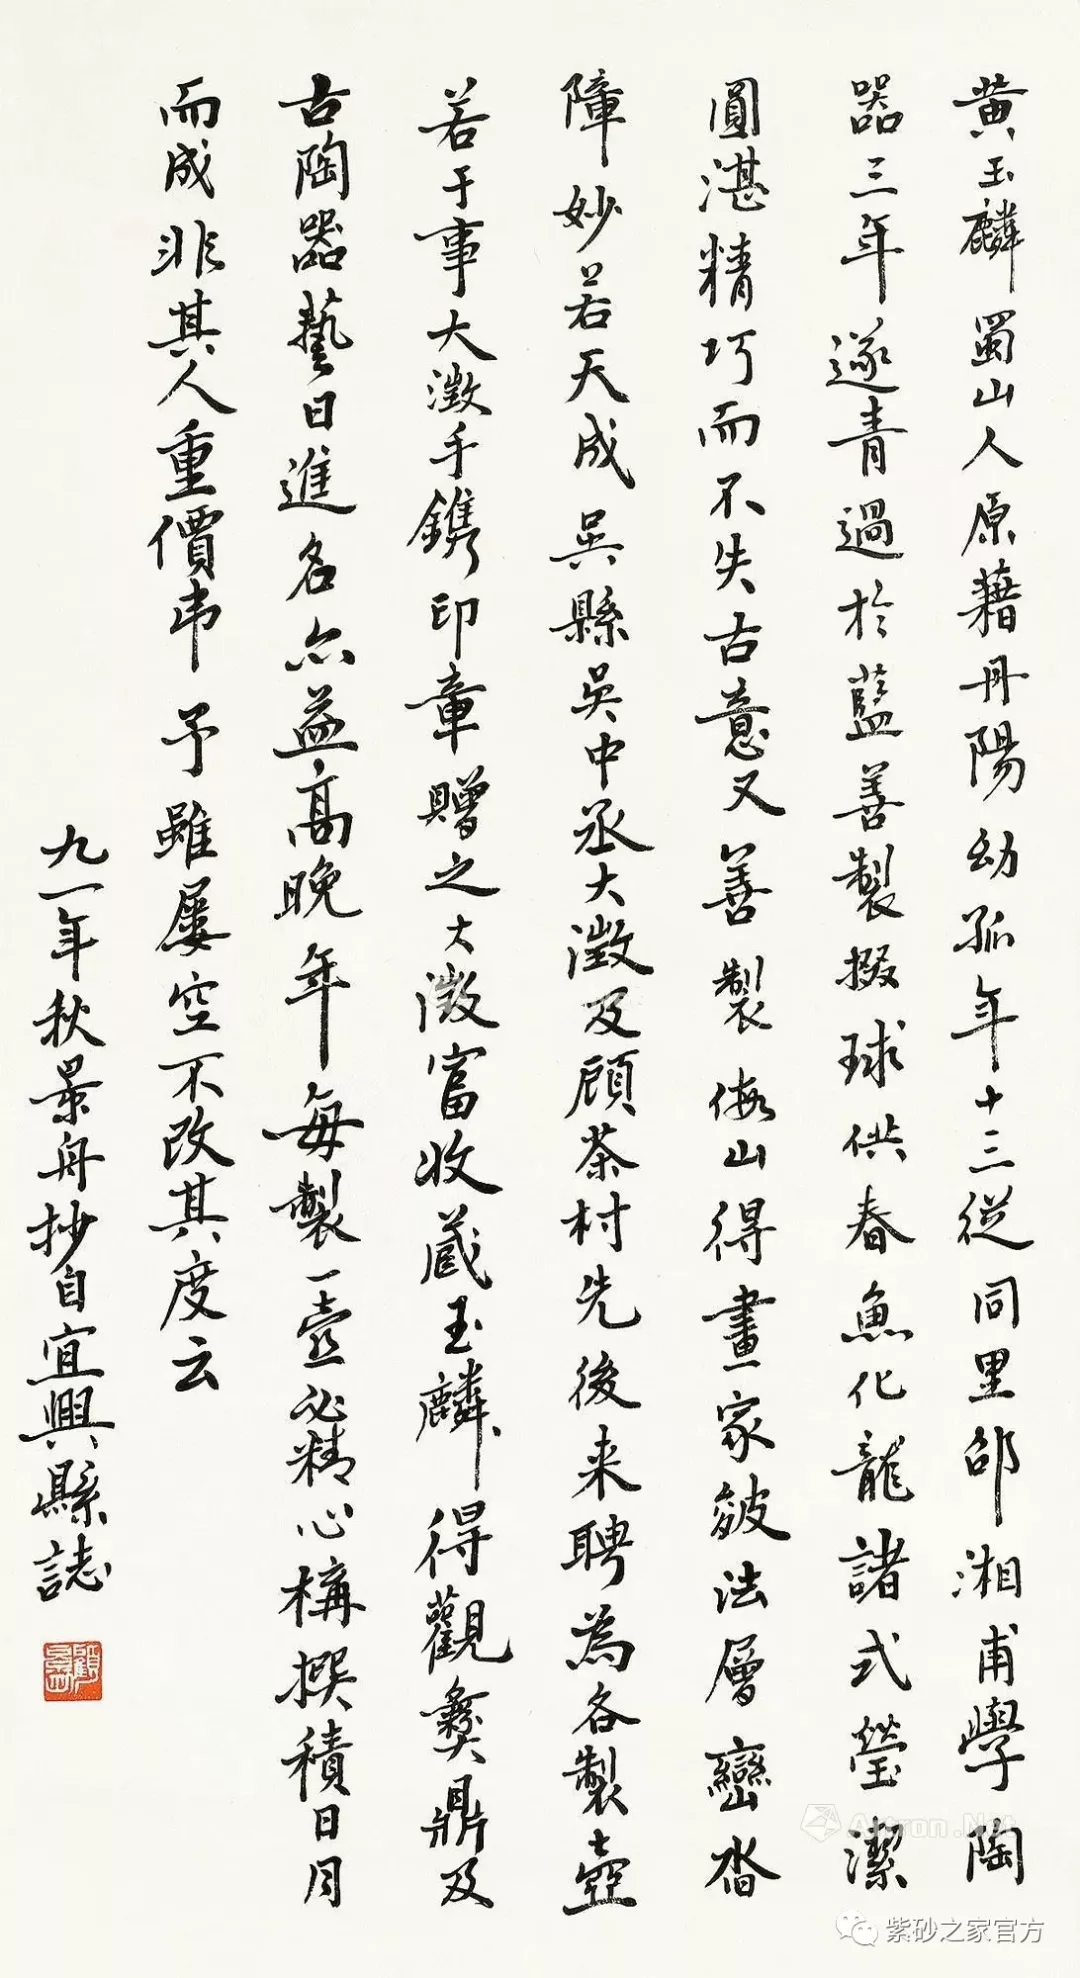 黄玉麟蜀山人原藉丹陽幼孤年十三從同里邵湘甫學陶
器三年遂青過於藍善製掇球供春魚化龍諸式瑩潔
圓湛精巧而不失古意又善製假山得畫家皴法層巒沓
障妙若天成吳縣吳中丞大澂及顧茶村先後来聘為各製壺
若干事大澂手鐫印章贈之大澂富收藏玉麟得觀彝鼎及
古陶器藝日進名亦益高晚年每製一壺必精心構撰積日月
而成非其人重價弗予雖屢空不改其度云
九一年秋景舟抄自宜興縣誌
Artron.Net
紫砂之家官方